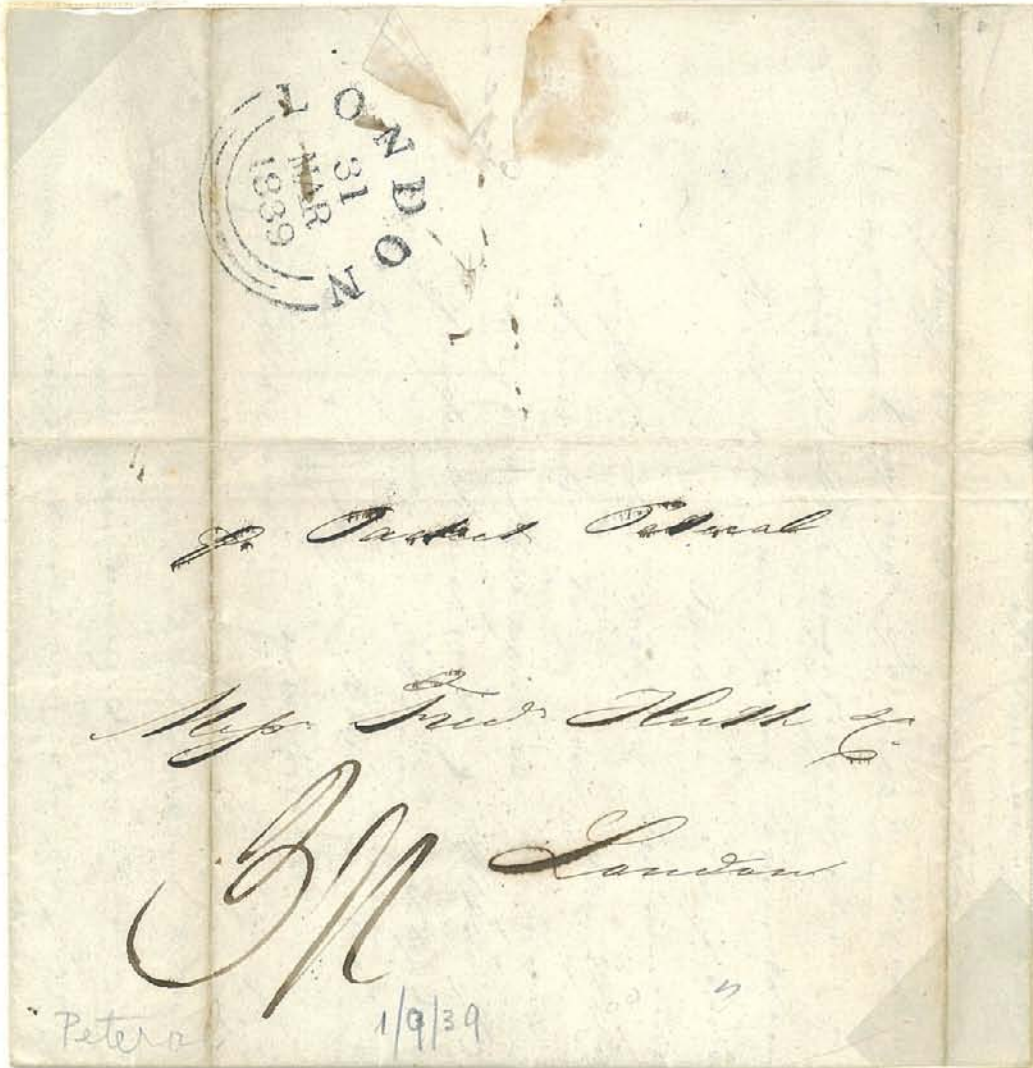 LONDON
31
MAR
1839
pr Packet Peteral
Messrs Fredk Huth & Co
London
Peteral
1/9/39